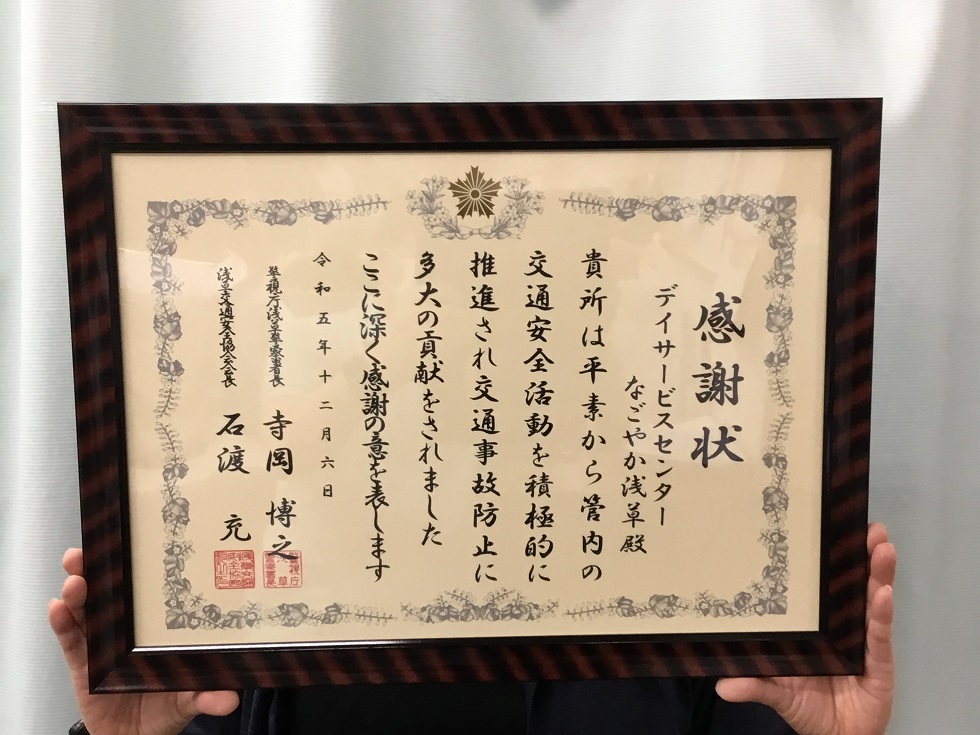 感謝状
デイサービスセンター
なごやか浅草殿
貴所は平素から管内の
交通安全活動を積極的に
推進され交通事故防止に
多大の貢献をされました
ここに深く感謝の意を表します
令和五年十二月六日
警視庁浅草警察署長 寺岡博之
浅草交通安全協会会長 石渡充